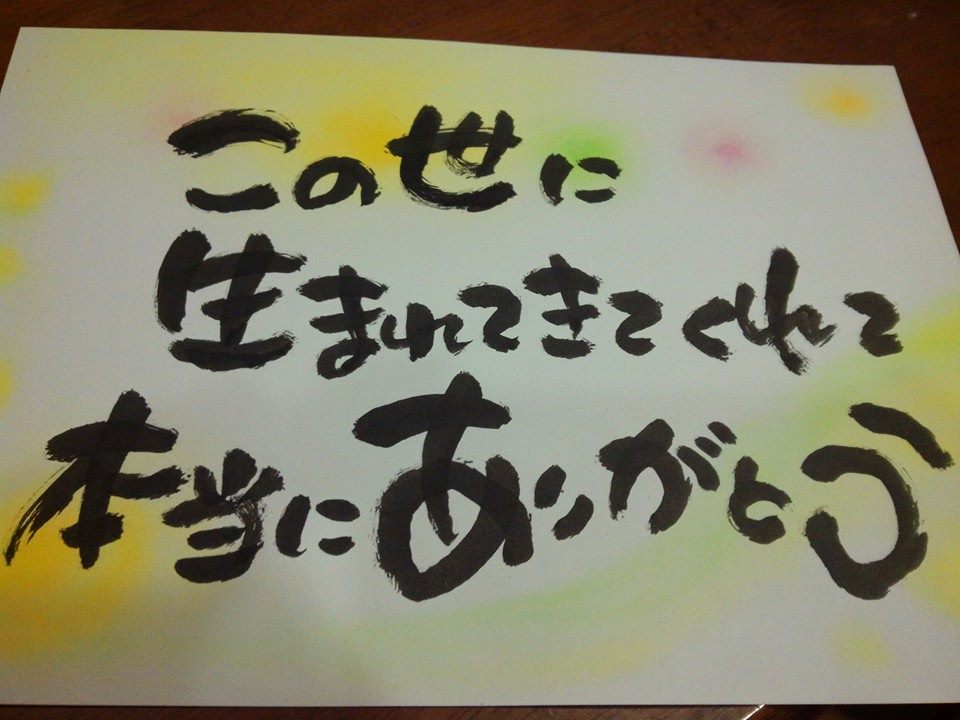 この世に
生まれてきてくれて
本当にありがとう